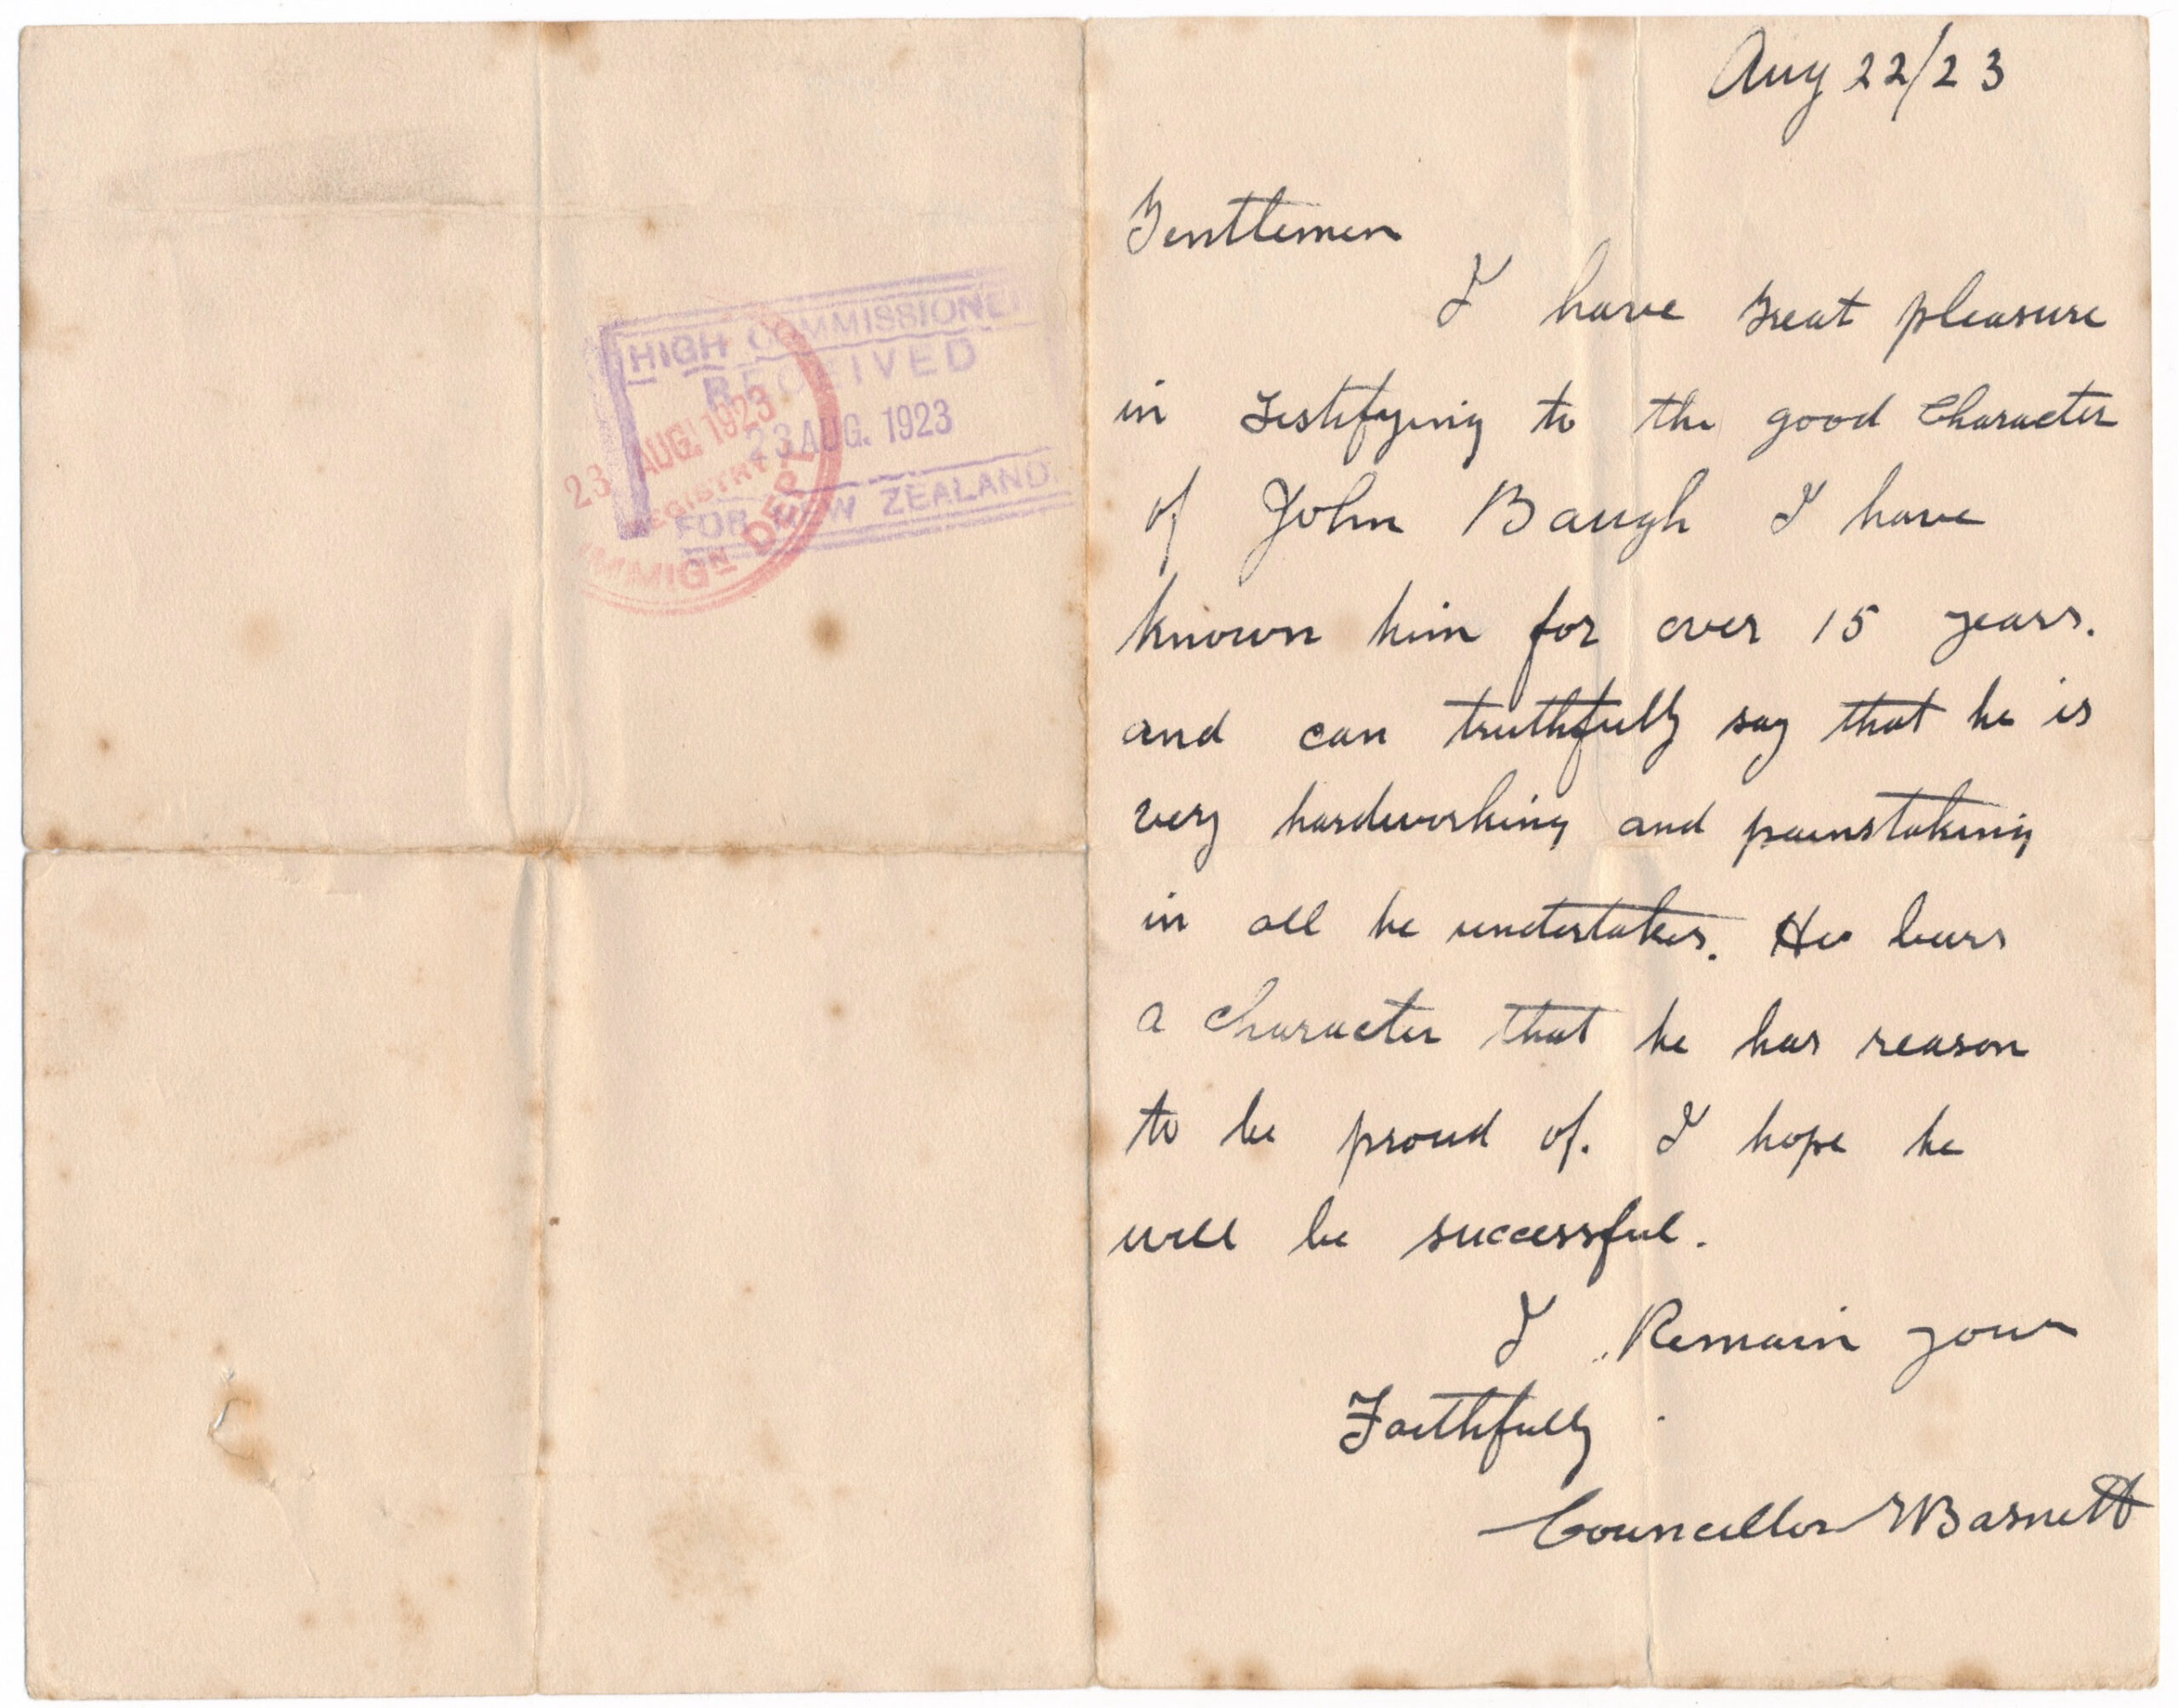 HIGH COMMISSIONER
RECEIVED
23 AUG. 1923
FOR NEW ZEALAND.
23 AUG. 1923
REGISTRY
IMMIGN DEPT
Aug 22/23
Gentlemen
I have great pleasure
in testifying to the good Character
of John Baugh I have
known him for over 15 years.
and can truthfully say that he is
very hardworking and painstaking
in all he undertakes. He bears
a character that he has reason
to be proud of. I hope he
will be successful.
I Remain your
Faithfully
Councillor W Barnett